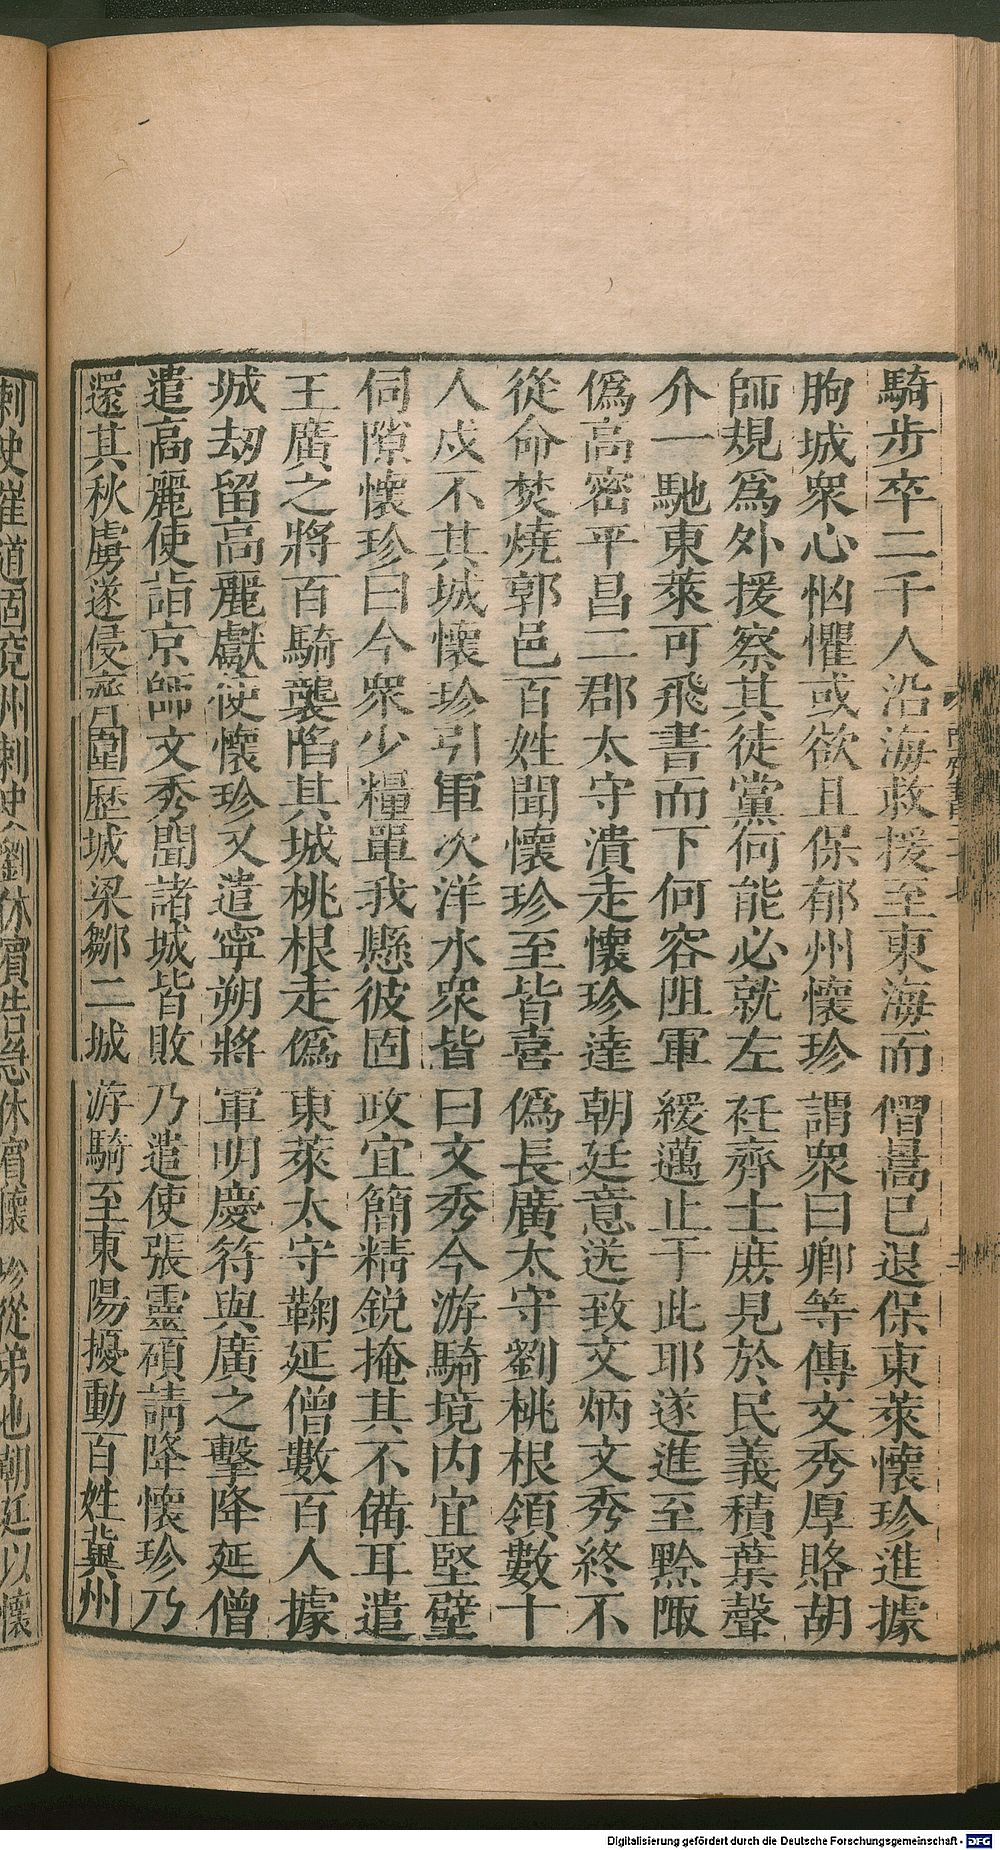 騎步卒二千人沿海救援至東海而僧暠已退保東萊懷珍進據
朐城衆心恟懼或欲且保郁州懷珍謂衆曰卿等傳文秀厚賂胡
師規爲外援察其徒黨何能必就左衽齊士庶見於民義積葉聲
介一馳東萊可飛書而下何容阻軍緩邁止于此耶遂進至黔陬
僞高密平昌二郡太守潰走懷珍達朝廷意送致文炳文秀終不
從命焚燒郭邑百姓聞懷珍至皆喜僞長廣太守劉桃根領數十
人戍不其城懷珍引軍次洋水衆皆曰文秀今游騎境内宜堅壁
伺隙懷珍曰今衆少糧單我懸彼固政宜簡精銳掩其不備耳遣
王廣之將百騎襲陷其城桃根走僞東萊太守鞠延僧數百人據
城劫留高麗獻使懷珍又遣寧朔將軍明慶符與廣之擊降延僧
遣高麗使詣京師文秀聞諸城皆敗乃遣使張靈碩請降懷珍乃
還其秋虜遂侵齊圍歷城梁鄒二城游騎至東陽擾動百姓冀州
刺史崔道固兗州刺史劉休賓告急休賓懷珍從弟也朝廷以懷
Digitalisierung gefördert durch die Deutsche Forschungsgemeinschaft - DFG